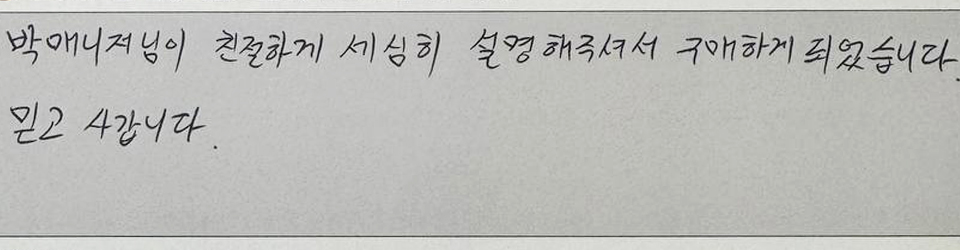 박매니저님이 친절하게 세심히 설명해주셔서 구매하게 되었습니다.
믿고 사갑니다.